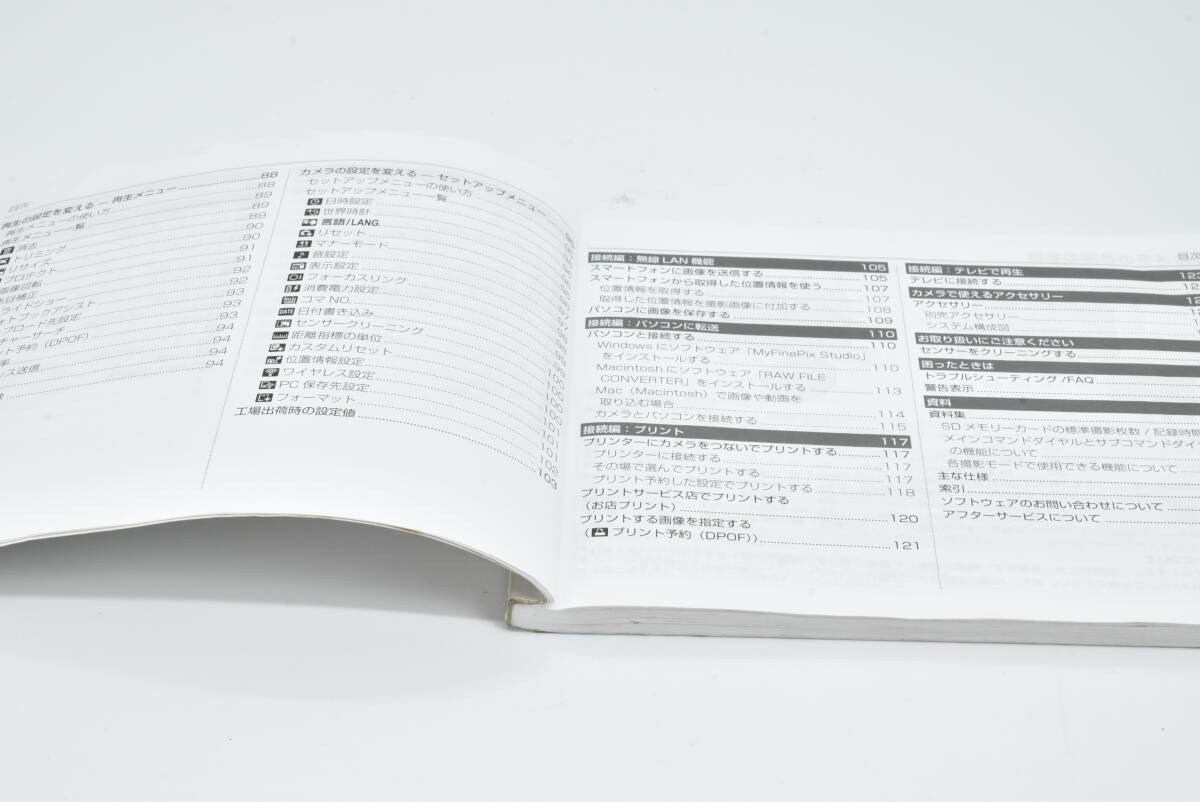 目次
再生の設定を変える ― 再生メニュー 88
再生メニューの使い方 88
再生メニュー一覧 89
消去 89
トリミング 90
リサイズ 90
プロテクト 91
画像回転 91
赤目補正 92
92
フォトブックアシスト 93
93
94
94
94
カメラの設定を変える ― セットアップメニュー
セットアップメニューの使い方
セットアップメニュー一覧
日時設定
世界時計
言語/LANG.
リセット
マナーモード
音設定
表示設定
フォーカスリング
消費電力設定
コマ NO.
DATE 日付書き込み
センサークリーニング
距離指標の単位
カスタムリセット
位置情報設定
ワイヤレス設定
PC 保存先設定
フォーマット
工場出荷時の設定値 103
目次
接続編:無線 LAN 機能 105
スマートフォンに画像を送信する 105
スマートフォンから取得した位置情報を使う 107
位置情報を取得する 107
取得した位置情報を撮影画像に付加する 108
パソコンに画像を保存する 109
接続編:パソコンに転送 110
パソコンと接続する 110
Windows にソフトウェア「MyFinePix Studio」
をインストールする 110
Macintosh にソフトウェア「RAW FILE
CONVERTER」をインストールする 113
Mac(Macintosh)で画像や動画を
取り込む場合 114
カメラとパソコンを接続する 115
接続編:プリント 117
プリンターにカメラをつないでプリントする 117
プリンターに接続する 117
その場で選んでプリントする 117
プリント予約した設定でプリントする 118
プリントサービス店でプリントする
(お店プリント) 120
プリントする画像を指定する
(プリント予約(DPOF)) 121
接続編:テレビで再生
テレビに接続する
カメラで使えるアクセサリー
アクセサリー
別売アクセサリー
システム構成図
お取り扱いにご注意ください
センサーをクリーニングする
困ったときは
トラブルシューティング /FAQ
警告表示
資料
資料集
SD メモリーカードの標準撮影枚数 / 記録時間
メインコマンドダイヤルとサブコマンドダイヤ
の機能について
各撮影モードで使用できる機能について
主な仕様
索引
ソフトウェアのお問い合わせについて
アフターサービスについて